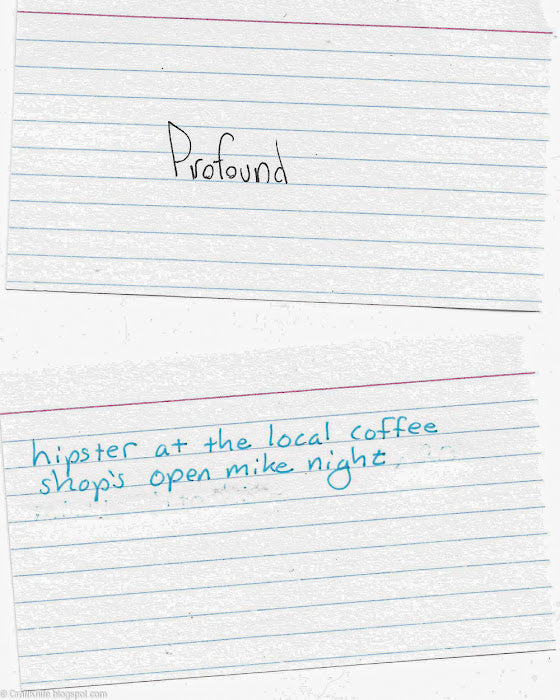 Profound
hipster at the local coffee
shop's open mike night
© CraftKnife.blogspot.com